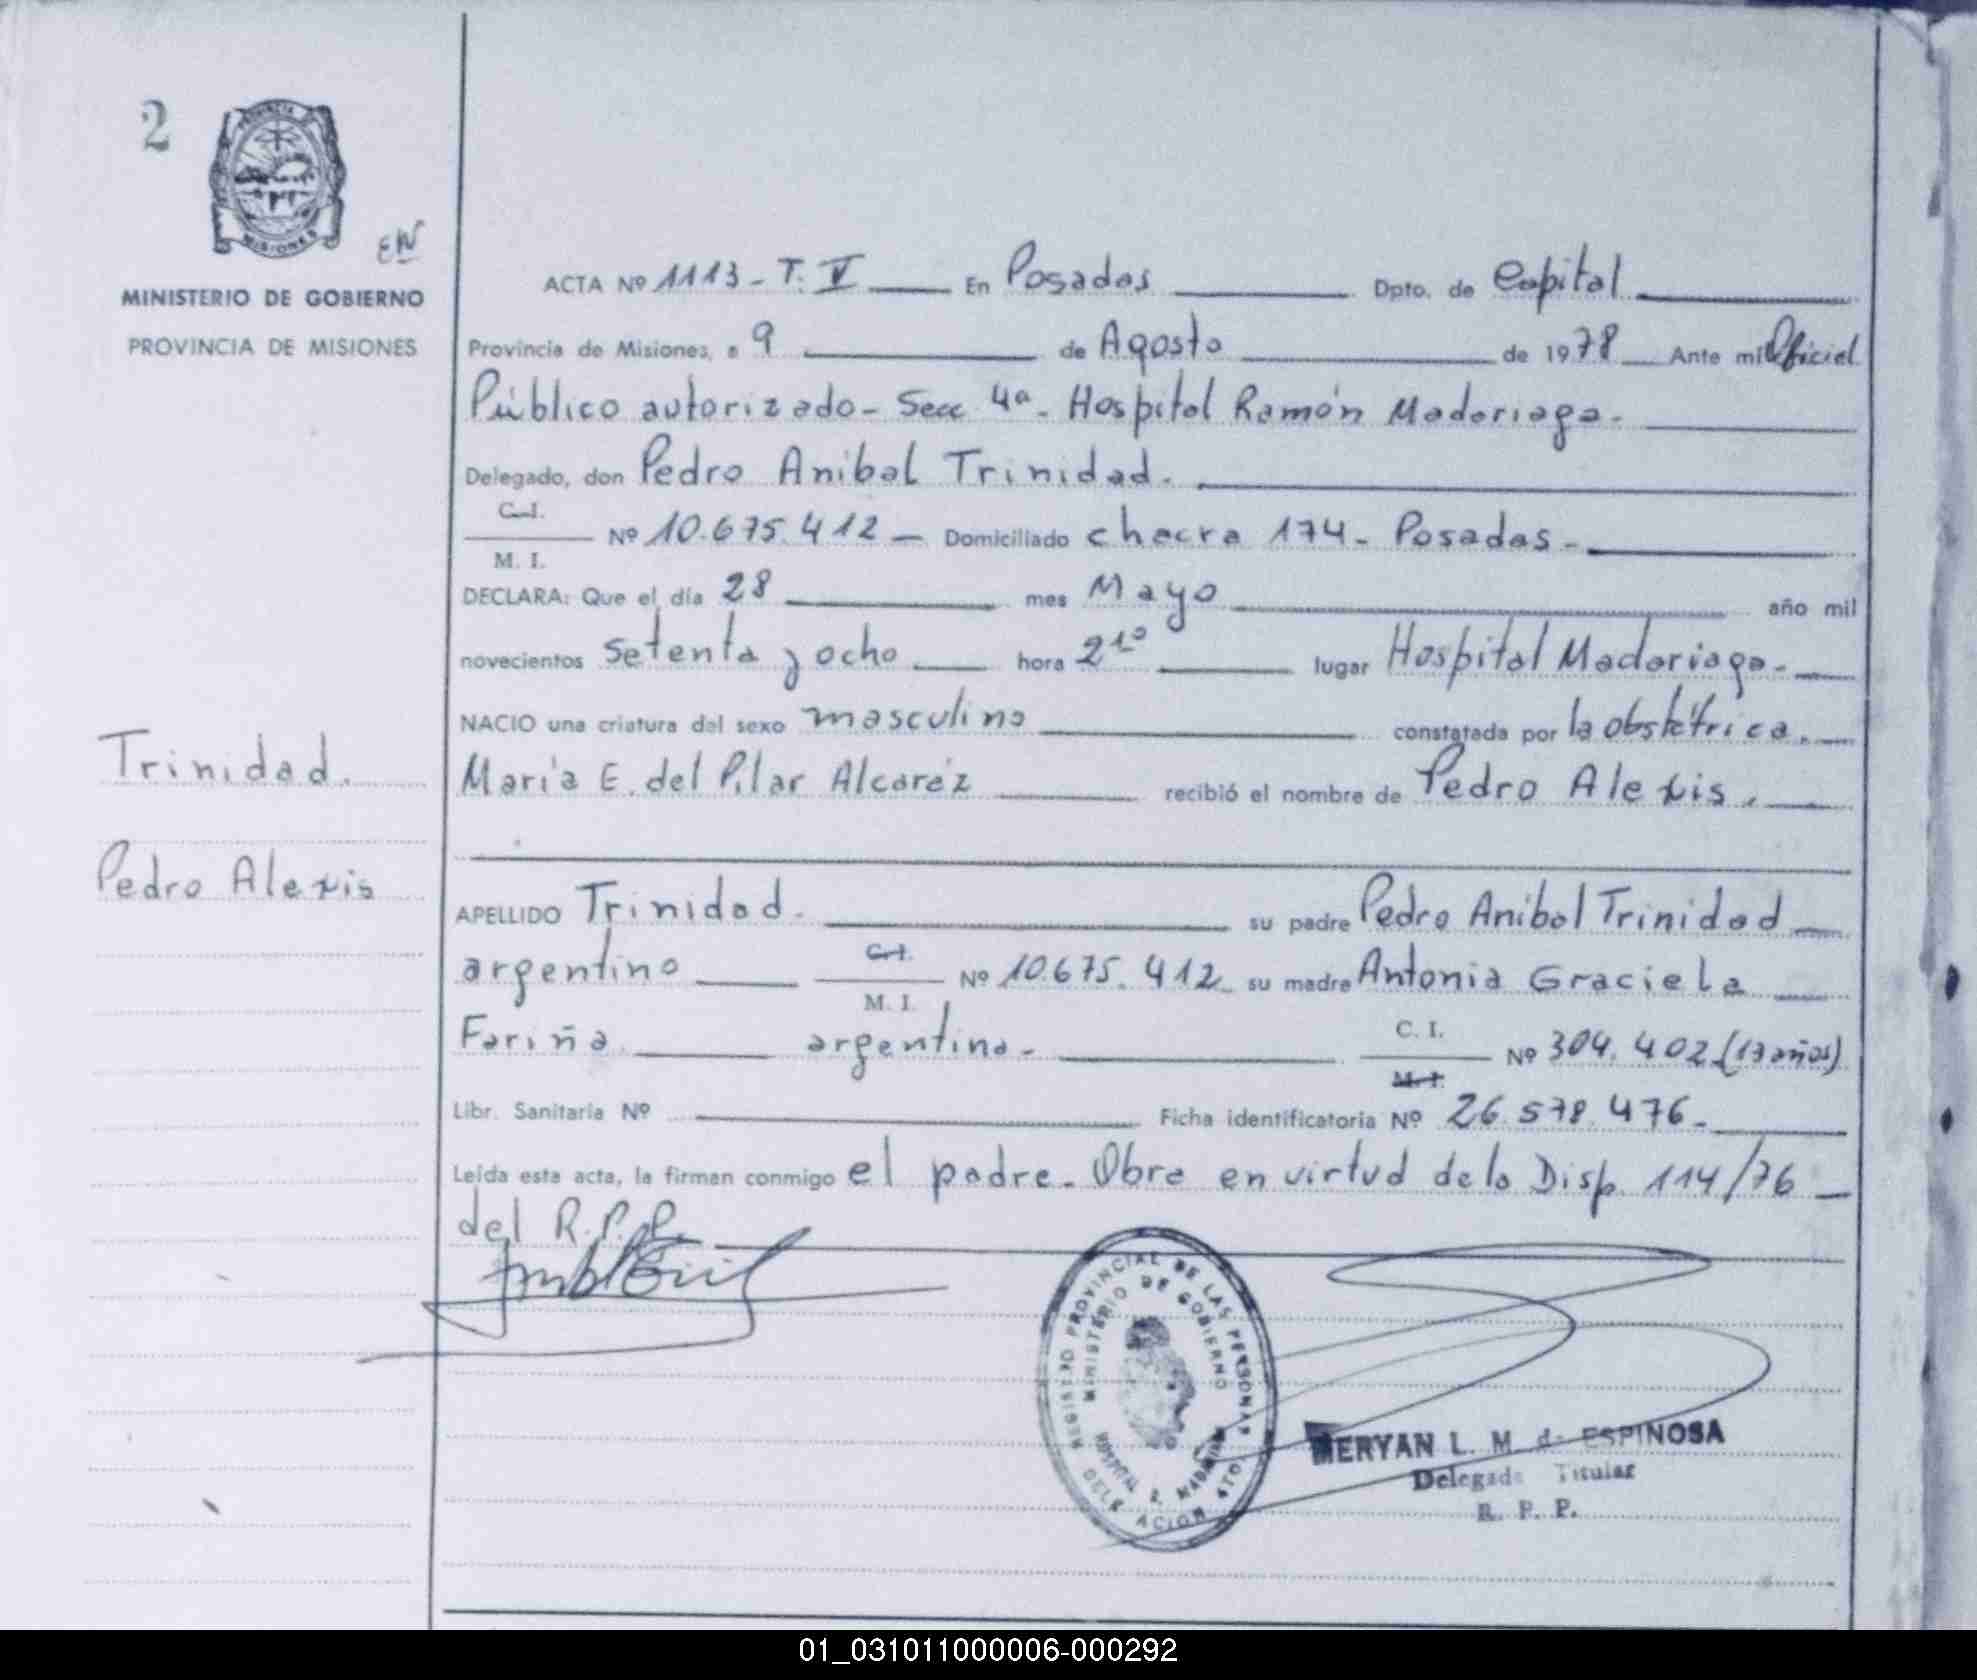 2
PROVINCIA
MISIONES
EN
MINISTERIO DE GOBIERNO
PROVINCIA DE MISIONES
ACTA Nº 1113 - T. V En Posadas Dpto. de Capital
Provincia de Misiones, a 9 de Agosto de 1978 Ante mi Oficial
Público autorizado - Secc 4ª - Hospital Ramón Madariaga.
Delegado, don Pedro Anibal Trinidad.
C.I.
Nº 10.675.412 - Domiciliado chacra 174 - Posadas -
M. I.
DECLARA: Que el día 28 mes Mayo año mil
novecientos setenta y ocho hora 21º lugar Hospital Madariaga -
NACIO una criatura del sexo masculino constatada por la obstétrica.
María E. del Pilar Alcaréz recibió el nombre de Pedro Alexis.
Trinidad.
Pedro Alexis
APELLIDO Trinidad. su padre Pedro Anibal Trinidad
C.I.
argentino Nº 10.675.412 su madre Antonia Graciela
M. I.
C. I.
Fariña argentina - Nº 304.402 (19 años)
M. I.
Libr. Sanitaria Nº Ficha identificatoria Nº 26.578.476 -
Leída esta acta, la firman conmigo el padre - Obra en virtud de la Disp. 114/76
del R.P.P.
REGISTRO PROVINCIAL DE LAS PERSONAS
MINISTERIO DE GOBIERNO
HOSPITAL R. MADARIAGA
MERYAN L. M. de ESPINOSA
Delegada Titular
R. P. P.
01_031011000006-000292